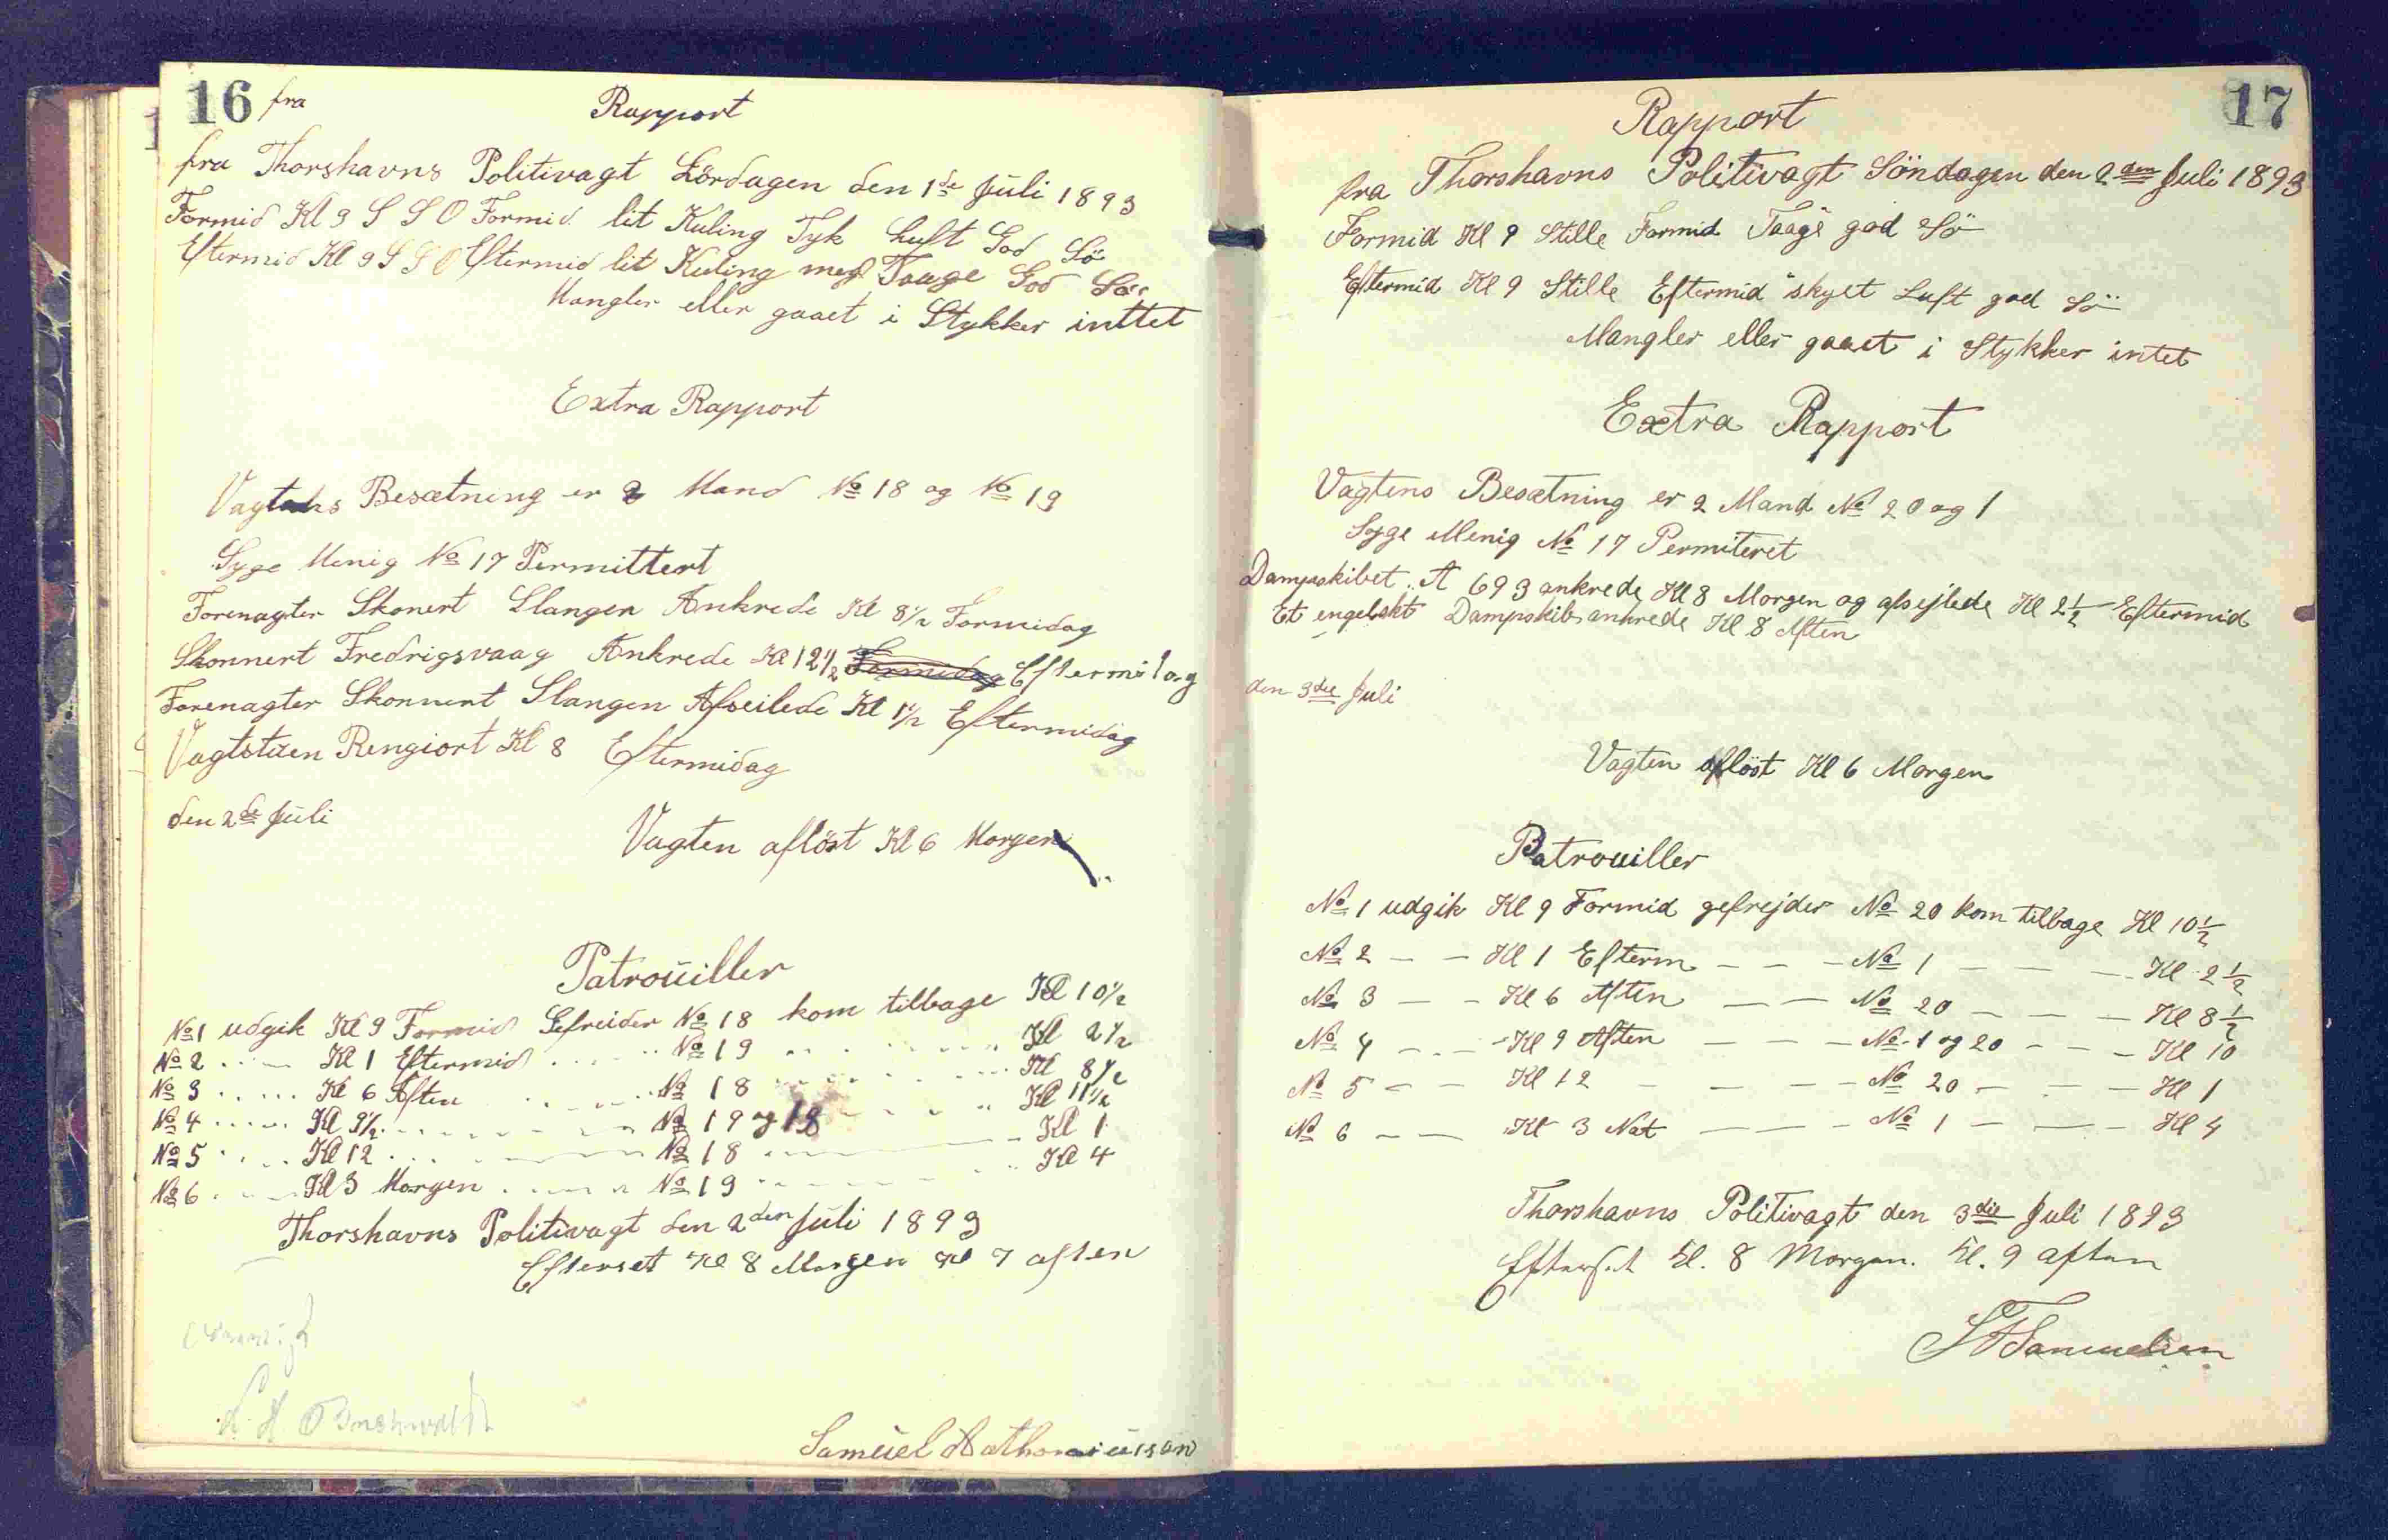 16 fra Rapport
fra Thorshavns Politivagt Lördagen den 1de Juli 1893
Formid Kl 9 S S O Formid lit Kuling Tyk Luft God Sö
Eftermid Kl 9 S S O Eftermid lit Kuling med Taage God Sö
Mangler eller gaaet i Stykker inttet
Extra Rapport
Vagtens Besætning er 2 Mand No 18 og No 19
Syge Menig No 17 Permittert
Forenagter Skonert Slangen Ankrede Kl 8½ Formidag
Skonnert Fredrigsvaag Ankrede Kl 12½ Formidag Eftermidag
Forenagter Skonnert Slangen Afseilede Kl 1½ Eftermidag
Vagtstuen Rengiort Kl 8 Eftermidag
den 2de Juli
Vagten aflöst Kl 6 Morgen
Patrouiller
No 1 udgik Kl 9 Formid Gefreider No 18 kom tilbage Kl 10½
No 2 Kl 1 Eftermid No 19 Kl 2½
No 3 Kl 6 Aften No 18 Kl 8½
No 4 Kl 9½ No 19 og 18 Kl 11½
No 5 Kl 12 No 18 Kl 1
No 6 Kl 3 Morgen No 19 Kl 4
Thorshavns Politivagt den 2den Juli 1893
Efterset Kl 8 Morgen Kl 7 aften
Samuel
17
Rapport
fra Thorshavns Politivagt Söndagen den 2den Juli 1893
Formid Kl 9 Stille Formid Taage god Sö
Eftermid Kl 9 Stille Eftermid skyet Luft god Sö
Mangler eller gaaet i Stykker intet
Extra Rapport
Vagtens Besætning er 2 Mand No 20 og 1
Syge Menig No 17 Permiteret
Dampskibet A 693 ankrede Kl 8 Morgen og afsejlede Kl 2½ Eftermid
Et engelskt Dampskib ankrede Kl 8 Aften
den 3die Juli
Vagten aflöst Kl 6 Morgen
Patrouiller
No 1 udgik Kl 9 Formid gefrejder No 20 kom tilbage Kl 10½
No 2 – – Kl 1 Efterm – – – No 1 – – – Kl 2½
No 3 – – Kl 6 Aften – – No 20 – – – Kl 8½
No 4 – – Kl 9 Aften – – – No 1 og 20 – – – Kl 10
No 5 – – Kl 12 – – – No 20 – – – Kl 1
No 6 – – Kl 3 Nat – – – No 1 – – – Kl 4
Thorshavns Politivagt den 3die Juli 1893
Efterset Kl. 8 Morgen. Kl. 9 aften
Samuelsen